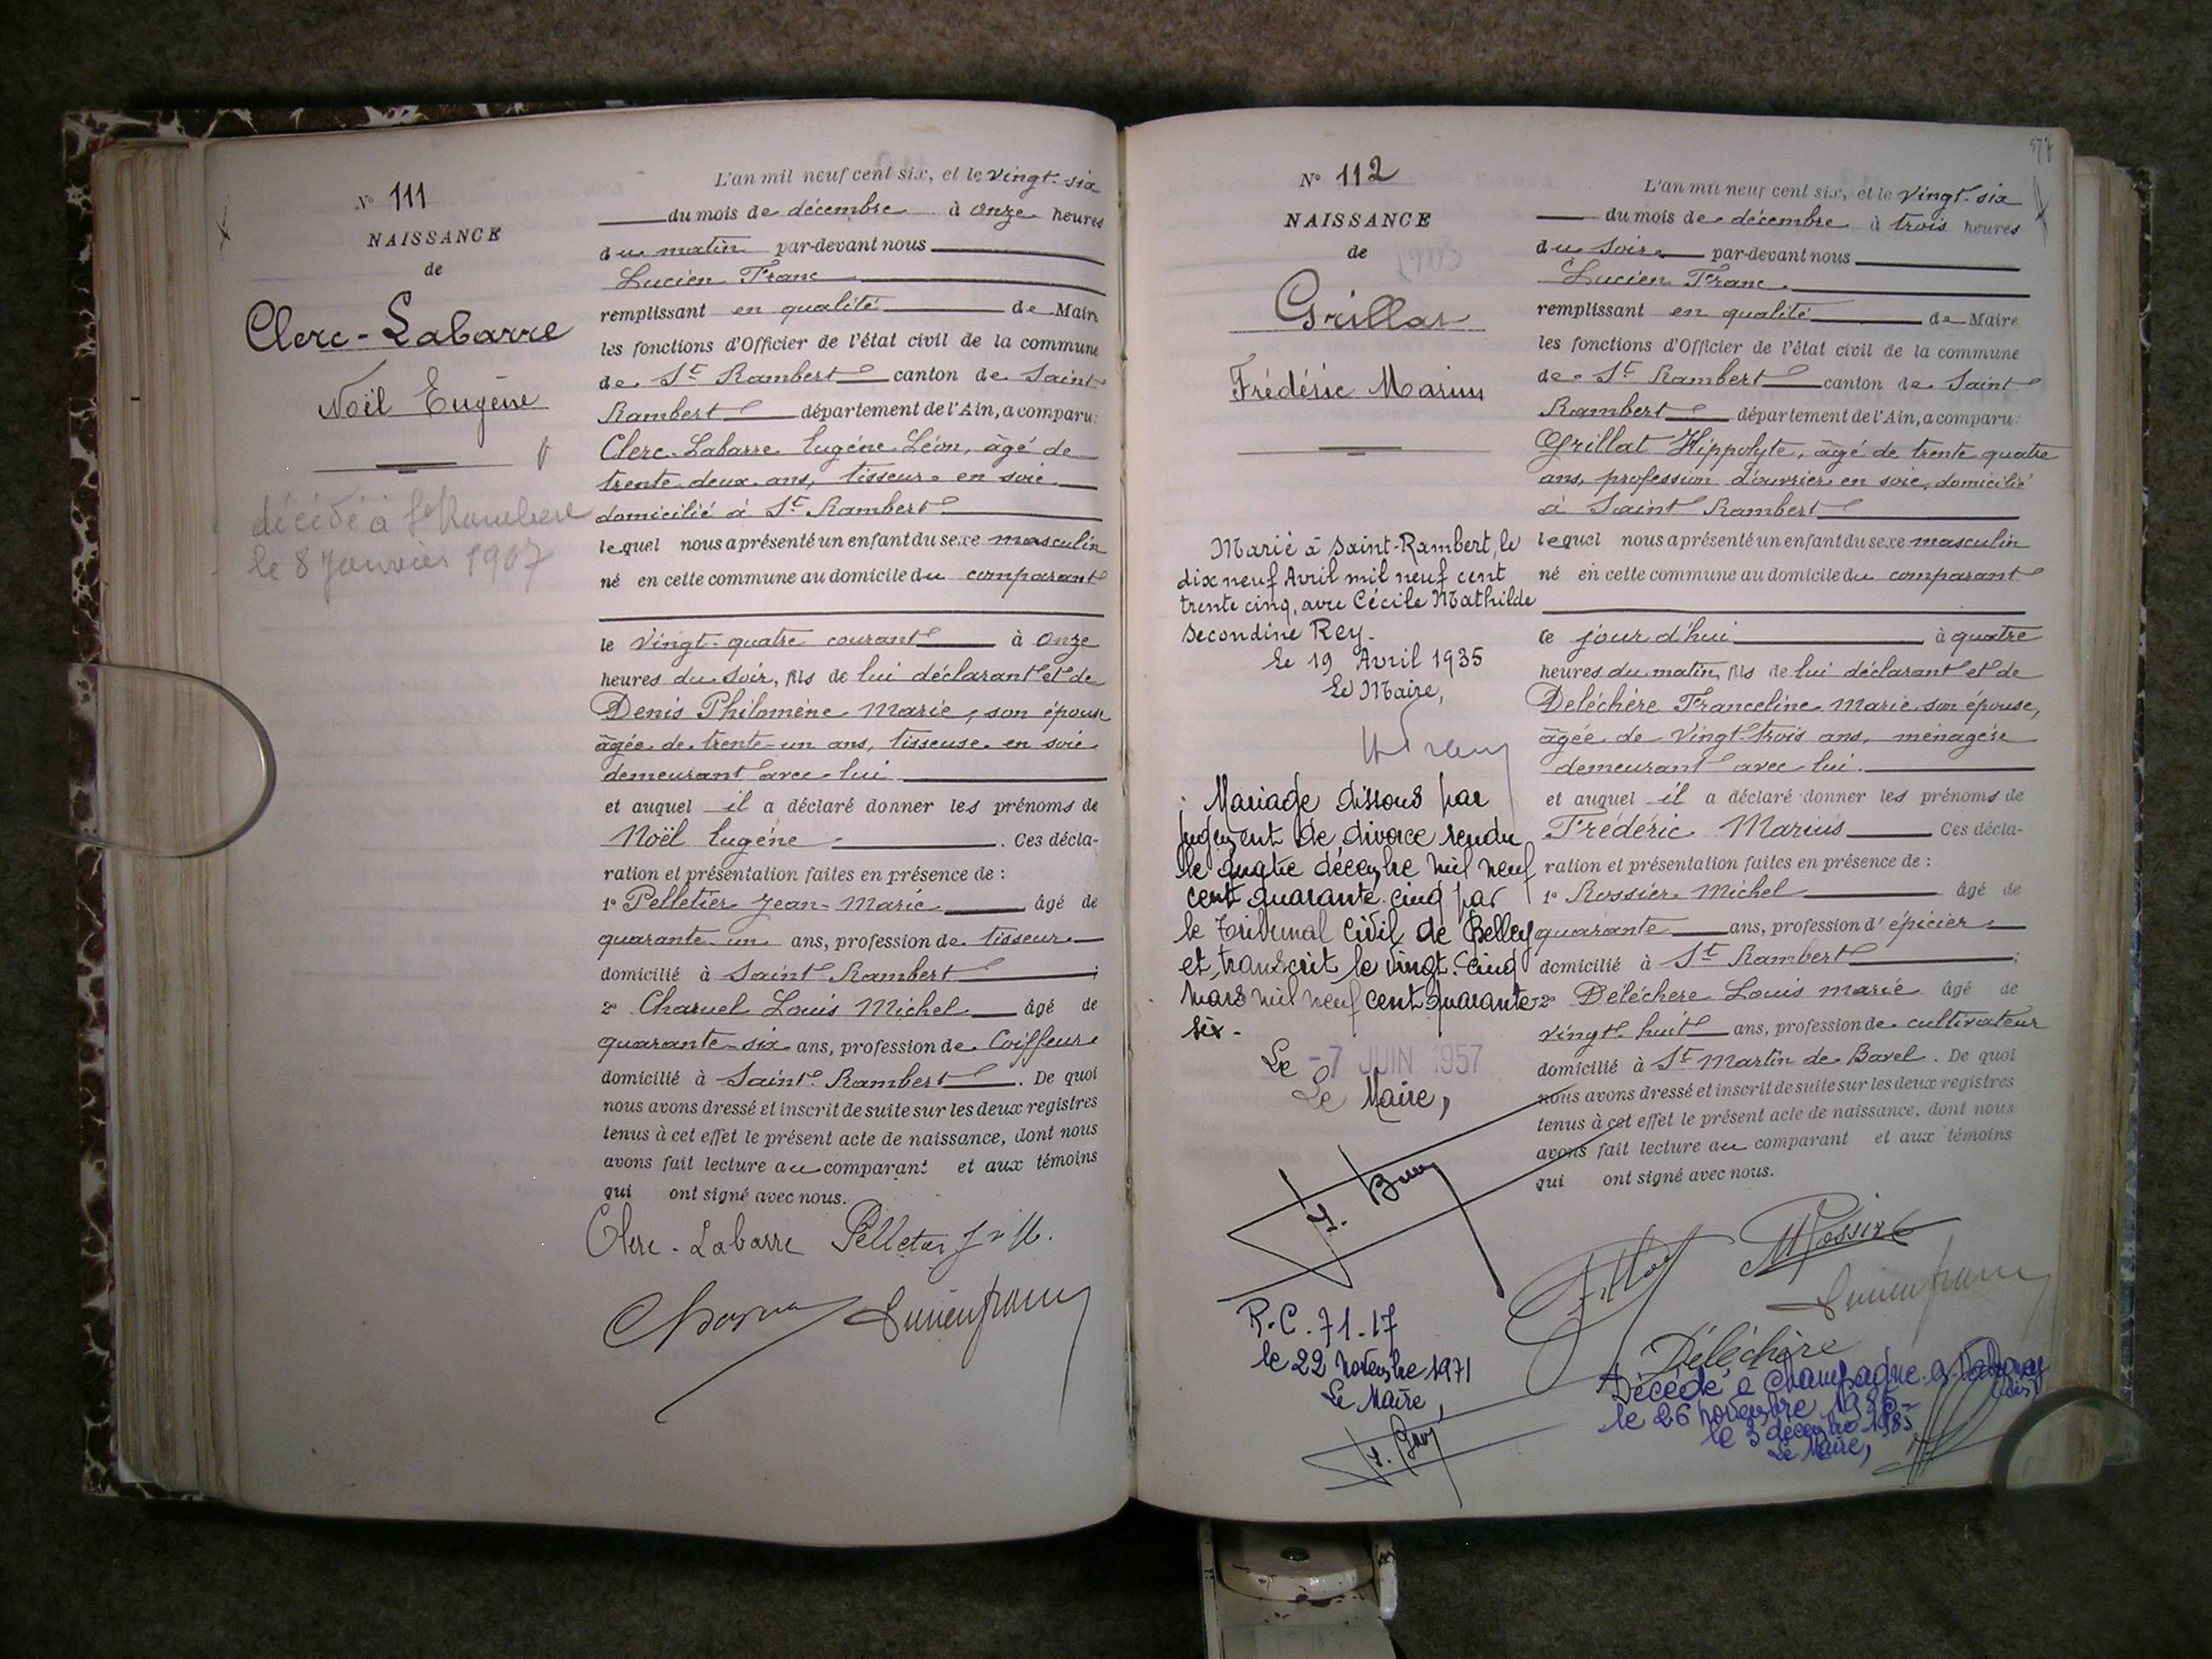 N° 111
NAISSANCE
de
Clerc-Labarre
Noël Eugène
décédé à St Rambert
le 8 Janvier 1907
L'an mil neuf cent six, et le vingt-six
du mois de décembre à onze heures
du matin par-devant nous
Lucien Franc
remplissant en qualité de Maire
les fonctions d'Officier de l'état civil de la commune
de St Rambert canton de Saint
Rambert département de l'Ain, a comparu:
Clerc-Labarre Eugène Léon, âgé de
trente deux ans, tisseur en soie
domicilié à St Rambert
lequel nous a présenté un enfant du sexe masculin
né en cette commune au domicile du comparant
le vingt-quatre courant à onze
heures du soir, fils de lui déclarant et de
Denis Philomène Marie, son épouse
âgée de trente-un ans, tisseuse en soie
demeurant avec lui
et auquel il a déclaré donner les prénoms de
Noël Eugène. Ces décla-
ration et présentation faites en présence de :
1° Pelletier Jean-Marie âgé de
quarante-un ans, profession de tisseur
domicilié à Saint Rambert ;
2° Charvel Louis Michel âgé de
quarante-six ans, profession de Coiffeur
domicilié à Saint Rambert. De quoi
nous avons dressé et inscrit de suite sur les deux registres
tenus à cet effet le présent acte de naissance, dont nous
avons fait lecture au comparant et aux témoins
qui ont signé avec nous.
Clerc-Labarre
Lucien Franc
N° 112
NAISSANCE
de
Grillat
Frédéric Marius
Marié à Saint-Rambert, le
dix neuf Avril mil neuf cent
trente cinq, avec Cécile Mathilde
Secondine Rey.
Le 19 Avril 1935
Le Maire,
Mariage dissous par
jugement de divorce rendu
le quatre décembre mil neuf
cent quarante-cinq par
le Tribunal Civil de Belley
et transcrit le vingt-cinq
mars mil neuf cent quarante-
six.
Le -7 JUIN 1957
Le Maire,
R.C. 71-17
le 22 novembre 1971
Le Maire,
L'an mil neuf cent six, et le vingt-six
du mois de décembre à trois heures
du soir par-devant nous
Lucien Franc
remplissant en qualité de Maire
les fonctions d'Officier de l'état civil de la commune
de St Rambert canton de Saint
Rambert département de l'Ain, a comparu:
Grillat Hippolyte, âgé de trente quatre
ans, profession d'ouvrier en soie, domicilié
à Saint Rambert
lequel nous a présenté un enfant du sexe masculin
né en cette commune au domicile du comparant
ce jour d'hui à quatre
heures du matin, fils de lui déclarant et de
Deléchère Franceline Marie son épouse,
âgée de vingt-trois ans, ménagère
demeurant avec lui.
et auquel il a déclaré donner les prénoms de
Frédéric Marius Ces décla-
ration et présentation faites en présence de :
1° Rossier Michel âgé de
quarante ans, profession d'épicier
domicilié à St Rambert ;
2° Deléchère Louis Marie âgé de
vingt huit ans, profession de cultivateur
domicilié à St Martin de Bavel. De quoi
nous avons dressé et inscrit de suite sur les deux registres
tenus à cet effet le présent acte de naissance, dont nous
avons fait lecture au comparant et aux témoins
qui ont signé avec nous.
Lucien Franc
Deléchère
Décédé à Champagne
le 26 novembre 1985
le 3 décembre 1985
Le Maire,